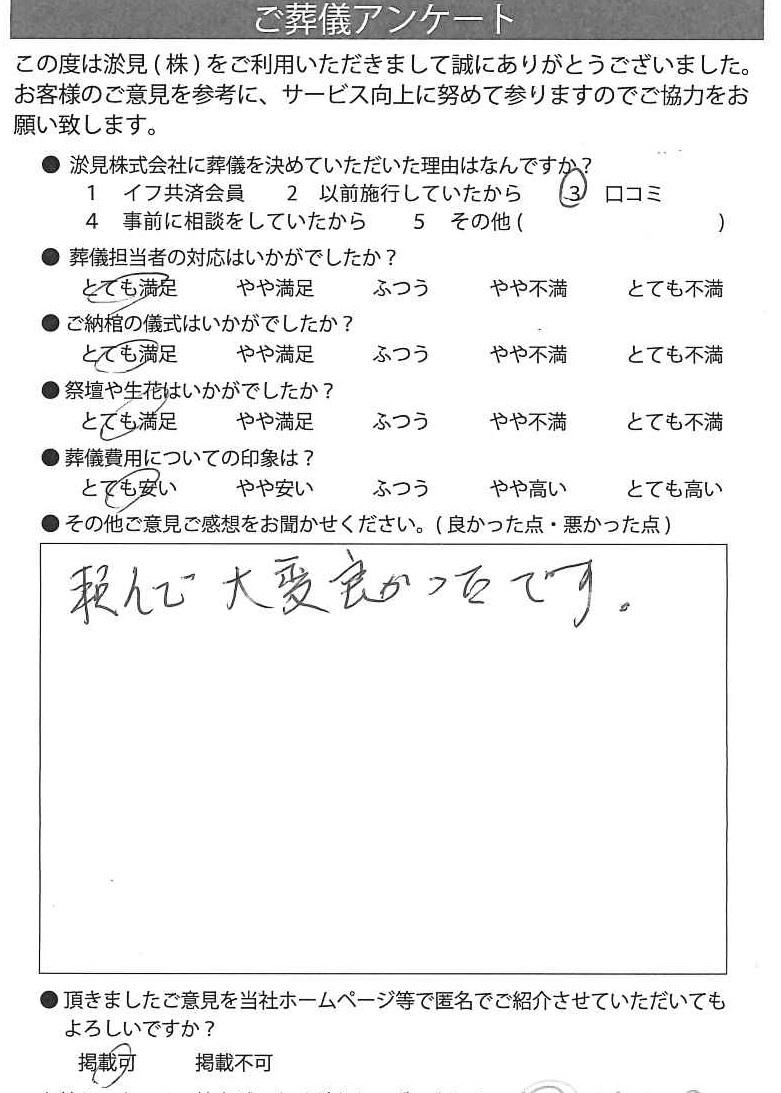 ご葬儀アンケート
この度は淤見(株)をご利用いただきまして誠にありがとうございました。
お客様のご意見を参考に、サービス向上に努めて参りますのでご協力をお
願い致します。
● 淤見株式会社に葬儀を決めていただいた理由はなんですか?
1 イフ共済会員 2 以前施行していたから 3 口コミ
4 事前に相談をしていたから 5 その他( )
● 葬儀担当者の対応はいかがでしたか?
とても満足 やや満足 ふつう やや不満 とても不満
● ご納棺の儀式はいかがでしたか?
とても満足 やや満足 ふつう やや不満 とても不満
● 祭壇や生花はいかがでしたか?
とても満足 やや満足 ふつう やや不満 とても不満
● 葬儀費用についての印象は?
とても安い やや安い ふつう やや高い とても高い
● その他ご意見ご感想をお聞かせください。(良かった点・悪かった点)
頼んで 大変良かったです。
● 頂きましたご意見を当社ホームページ等で匿名でご紹介させていただいても
よろしいですか?
掲載可 掲載不可